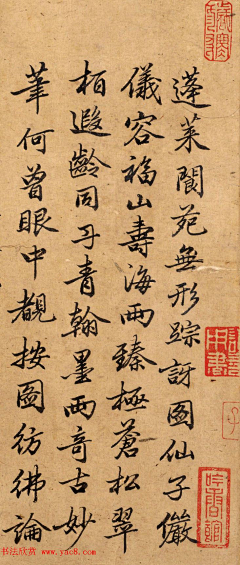 蓬萊閬苑無形踪訝圖仙子儼
儀容福山壽海兩臻極蒼松翠
栢遐齡同子青翰墨兩奇古妙
筆何曾眼中覩按圖彷彿論
书法欣赏 www.yac8.com